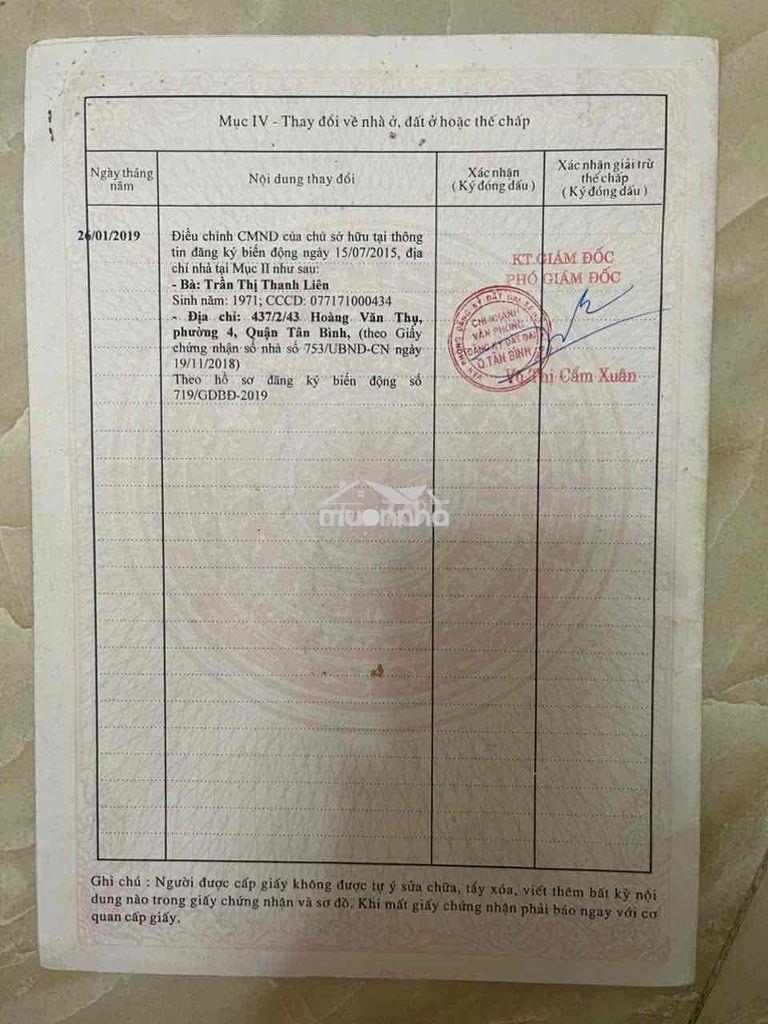 Mục IV - Thay đổi về nhà ở, đất ở hoặc thế chấp
Ngày tháng năm
Nội dung thay đổi
Xác nhận
( Ký đóng dấu )
Xác nhận giải trừ
thế chấp
( Ký đóng dấu )
26/01/2019
Điều chỉnh CMND của chủ sở hữu tại thông
tin đăng ký biến động ngày 15/07/2015, địa
chỉ nhà tại Mục II như sau:
- Bà: Trần Thị Thanh Liên
Sinh năm: 1971; CCCD: 077171000434
- Địa chỉ: 437/2/43 Hoàng Văn Thụ,
phường 4, Quận Tân Bình, (theo Giấy
chứng nhận số nhà số 753/UBND-CN ngày
19/11/2018)
Theo hồ sơ đăng ký biến động số
719/GDBĐ-2019
KT.GIÁM ĐỐC
PHÓ GIÁM ĐỐC
CHI NHÁNH
VĂN PHÒNG
ĐĂNG KÝ ĐẤT ĐAI
Q.TÂN BÌNH
Võ Thị Cẩm Xuân
muonnha
Ghi chú : Người được cấp giấy không được tự ý sửa chữa, tẩy xóa, viết thêm bất kỳ nội
dung nào trong giấy chứng nhận và sơ đồ. Khi mất giấy chứng nhận phải báo ngay với cơ
quan cấp giấy.